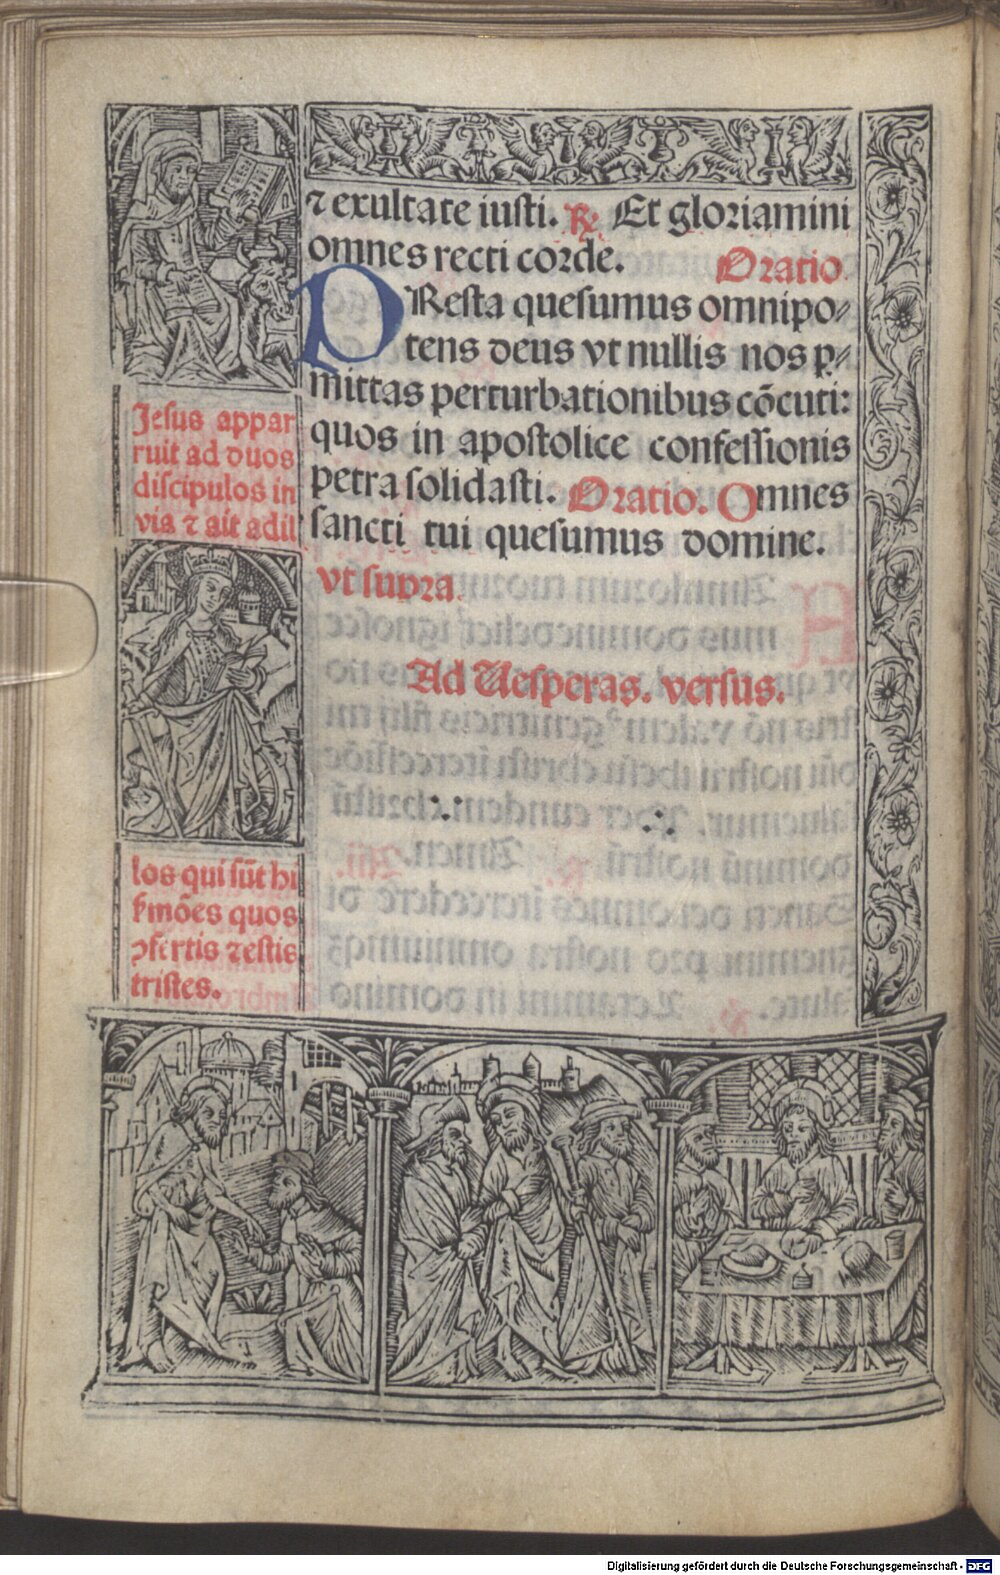 ⁊ exultate iusti. ℟. Et gloriamini
omnes recti corde. Oratio.
PResta quesumus omnipo⸗
tens deus vt nullis nos ꝑ⸗
mittas perturbationibus cõcuti:
quos in apostolice confessionis
petra solidasti. Oratio. Omnes
sancti tui quesumus domine.
vt supra.
Ad Uesperas. versus.
Jesus appar
ruit ad duos
discipulos in
via ⁊ ait ad il
los qui sũt hi
ẜmões quos
ꝯfertis ⁊ estis
tristes.
Digitalisierung gefördert durch die Deutsche Forschungsgemeinschaft - DFG